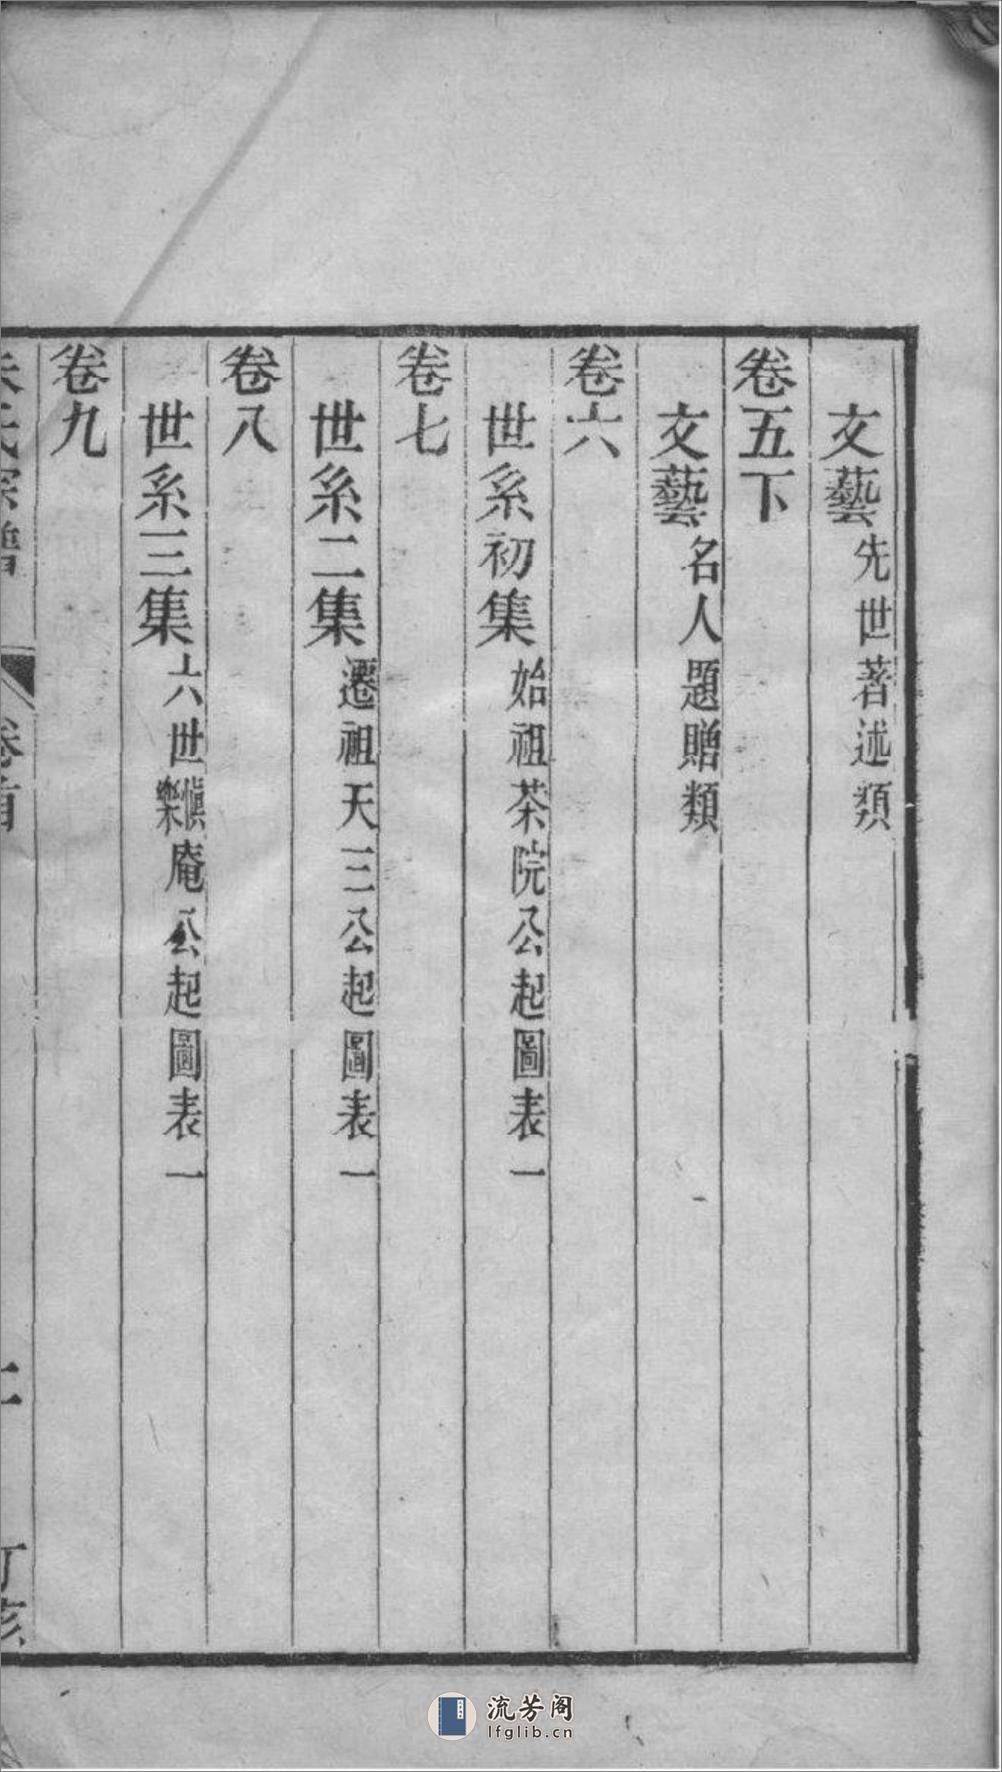 文藝先世著述類
卷五下
文藝名人題贈類
卷六
世系初集始祖茶院公起圖表一
卷七
世系二集遷祖天三公起圖表一
卷八
世系三集六世慎樂庵公起圖表一
卷九
氏宗譜 卷首
流芳阁
lfglib.cn